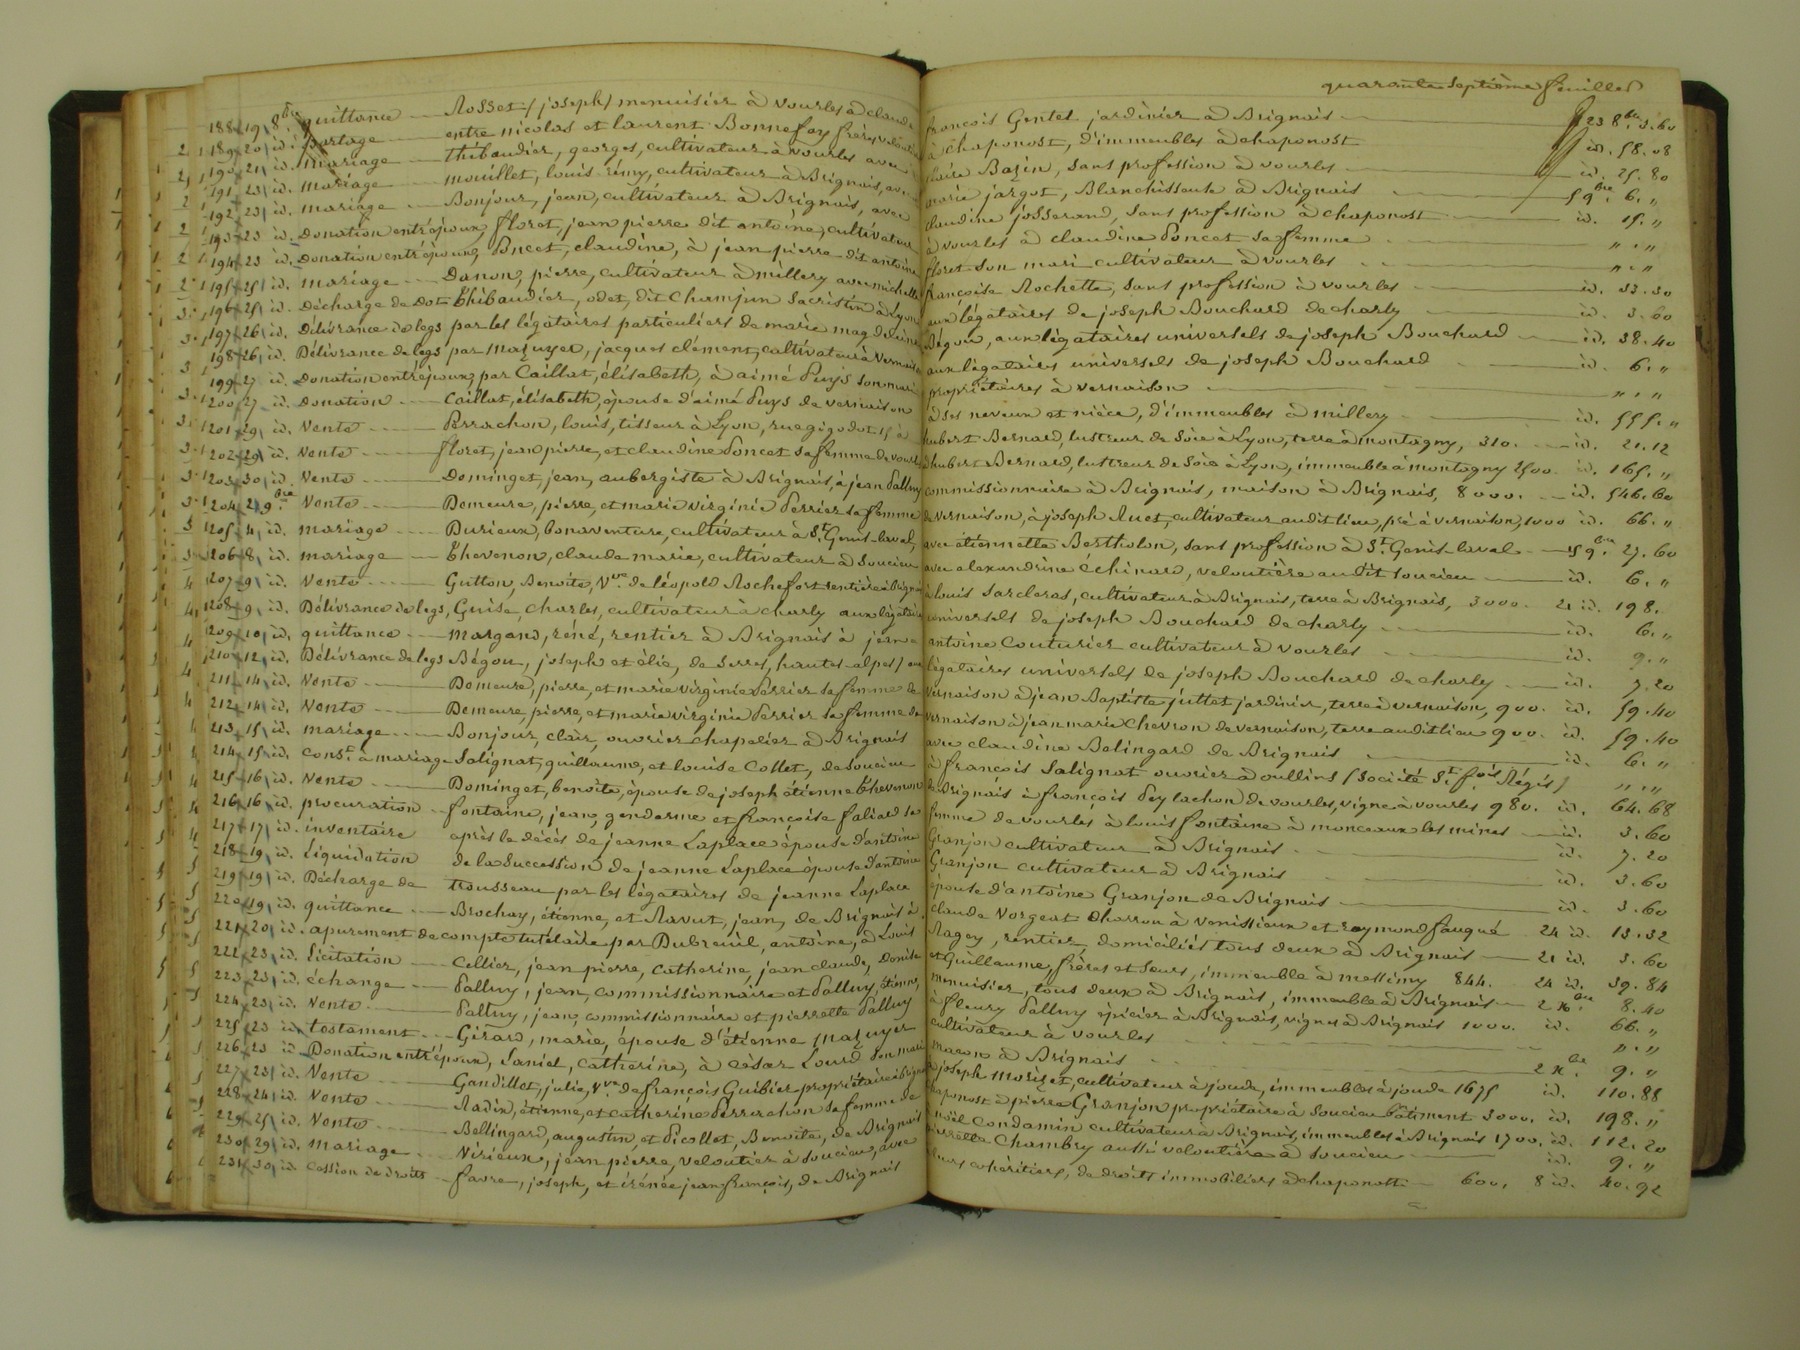 quarante septième feuillet
188 19 8bre quittance Rosset (joseph) menuisier à vourles à claude françois Gentet jardinier à Brignais 23 8bre 3.60
189 20 id. Partage entre nicolas et laurent Bonnefoy frères à chaponost, d'immeubles à chaponost id. 58.08
190 21 id. mariage Thibaudier, georges, cultivateur à vourles avec claire Bazin, sans profession à vourles id. 25.80
191 23 id. mariage mouillet, louis rémy, cultivateur à Brignais, avec marie jargot, Blanchisseuse à Brignais 5 9bre 6."
192 23 id. mariage Bonjour, jean, cultivateur à Brignais, avec claudine josserand, sans profession à chaponost id. 15."
193 23 id. Donation entr'époux, floret, jean pierre dit antoine, cultivateur à vourles à claudine Poncet sa femme "."
194 23 id. Donation entr'époux, Poncet, claudine, à jean pierre dit antoine floret son mari cultivateur à vourles "."
195 25 id. mariage Danon, pierre, cultivateur à millery avec michelle françoise Rochette, sans profession à vourles id. 33.30
196 25 id. Décharge de dot Thibaudier, odet, dit Champin sacristin à Lyon aux légataires de joseph Bouchard de charly id. 3.60
197 26 id. Délivrance de legs par les légataires particuliers de marie magdeleine Bégou, aux légataires universels de joseph Bouchard id. 38.40
198 26 id. Délivrance de legs par Mazuyer, jacques clément, cultivateur à Vernaison aux légataires universels de joseph Bouchard id. 6."
199 27 id. Donation entr'époux, par Caillat, élisabeth, à aimé Puys son mari propriétaires à vernaison "."
200 27 id. Donation Caillat, élisabeth, épouse d'aimé Puys de vernaison à ses neveux et nièce, d'immeubles à millery id. 555."
201 29 id. Vente Perrachon, louis, tisseur à Lyon, rue gigodot 15 à hubert Bernard, lustreur de soie à Lyon, terre à montagny, 310. id. 21.12
202 29 id. Vente floret, jean pierre, et claudine Poncet sa femme de vourles à hubert Bernard, lustreur de soie à Lyon, immeuble à montagny 2500. id. 165."
203 30 id. Vente Dominget, jean, aubergiste à Brignais, à jean Palluy commissionnaire à Brignais, maison à Brignais, 8000. id. 546.60
204 2 9bre Vente Demeure, pierre, et marie virginie Perrier sa femme de vernaison, à joseph Ruet, cultivateur audit lieu, pré à vernaison, 1000 id. 66."
205 4 id. mariage Durieux, bonaventure, cultivateur à St. Genis-laval, avec étiennette Bertholon, sans profession à St. Genis-laval 15 9bre 27.60
206 8 id. mariage Thevenon, claude marie, cultivateur à Soucieu avec alexandrine Echinard, veloutière audit Soucieu id. 6."
207 9 id. Vente Gutton, Benoite, Vve de léopold Rochefort rentière à Brignais à louis Sarcleras, cultivateur à Brignais, terre à Brignais, 3000. 21 id. 198.
208 9 id. Délivrance de legs, Guise, Charles, cultivateur à charly aux légataires universels de joseph Bouchard de charly id. 6."
209 10 id. quittance margand, réné, rentier à Brignais à jean antoine Couturier cultivateur à vourles id. 9."
210 12 id. Délivrance de legs Bégou, joseph et élie, de Serres, hautes-alpes) aux légataires universels de joseph Bouchard de charly id. 7.20
211 14 id. Vente Demeure, pierre, et marie virginie Perrier sa femme de vernaison à jean Baptiste juttet jardinier, terre à vernaison, 900. id. 59.40
212 14 id. Vente Demeure, pierre, et marie virginie Perrier sa femme de vernaison à jean marie Chevron de vernaison, terre audit lieu 900. id. 59.40
213 15 id. mariage Bonjour, clair, ouvrier chapelier à Brignais avec claudine Belingard de Brignais id. 6."
214 15 id. Const. à mariage Salignat, guillaume, et louise Collet, de Soucieu à françois Salignat ouvrier à oullins (Société St. fois Régis) "."
215 16 id. Vente Dominget, benoite, épouse de joseph étienne Thevenon de Brignais à françois Peylachon de vourles, vigne à vourles 980. id. 64.68
216 16 id. procuration fontaine, jean, gendarme et françoise faliard sa femme de vourles à louis fontaine à monceaux les mines id. 3.60
217 17 id. inventaire après le décès de jeanne Laplace épouse d'antoine Granjon cultivateur à Brignais id. 7.20
218 19 id. Liquidation de la succession de jeanne Laplace épouse d'antoine Granjon cultivateur à Brignais id. 3.60
219 19 id. Décharge de trousseau par les légataires de jeanne Laplace épouse d'antoine Granjon de Brignais id. 3.60
220 19 id. quittance Brochay, étienne, et Ravut, jean, de Brignais à claude Vorgeat charron à Venissieux et reymond fauque 24 id. 13.32
221 20 id. apurement de compte tutélaire par Dubreuil, antoine, à Louis Ragey, rentier, domiciliés tous deux à Brignais 21 id. 3.60
222 23 id. Licitation Cellier, jean pierre, catherine, jean claude, denise et Guillaume, frères et sœurs, immeuble à messimy 844. 24 id. 39.84
223 23 id. échange Palluy, jean, commissionnaire et Palluy, étienne, menuisier, tous deux à Brignais, immeuble à Brignais 2 Xbre 8.40
224 23 id. Vente Palluy, jean, commissionnaire et pierrette Palluy à fleury Palluy épicier à Brignais, vigne à Brignais 1000. id. 66."
225 23 id. testament Girard, marie, épouse d'étienne Mazuyer cultivateur à vourles "."
226 23 id. Donation entr'époux, Laniel, catherine, à césar Lourd son mari maçon à Brignais 2 Xbre 9."
227 23 id. Vente Gandillet, julie, Vve de françois Guibier propriétaire à Brignais à joseph Morizet, cultivateur à jonde, immeubles à jonde 1675 id. 110.88
228 24 id. Vente Radix, étienne, et catherine Perrachon sa femme de chaponost à pierre Granjon propriétaire à Soucieu bâtiment 3000. id. 198."
229 25 id. Vente Bellingard, augustin, et Picollet, Benoite, de Brignais à noël Condamin cultivateur à Brignais, immeubles à Brignais 1700. id. 112.20
230 29 id. Mariage Nirieux, jean pierre, veloutier à Soucieu, avec pierrette Chambry aussi veloutière à Soucieu id. 9."
231 30 id. Cession de droits favre, joseph, et irénée jean françois, de Brignais leurs cohéritiers, de droits immobiliers à chaponost 600. 8 id. 40.92